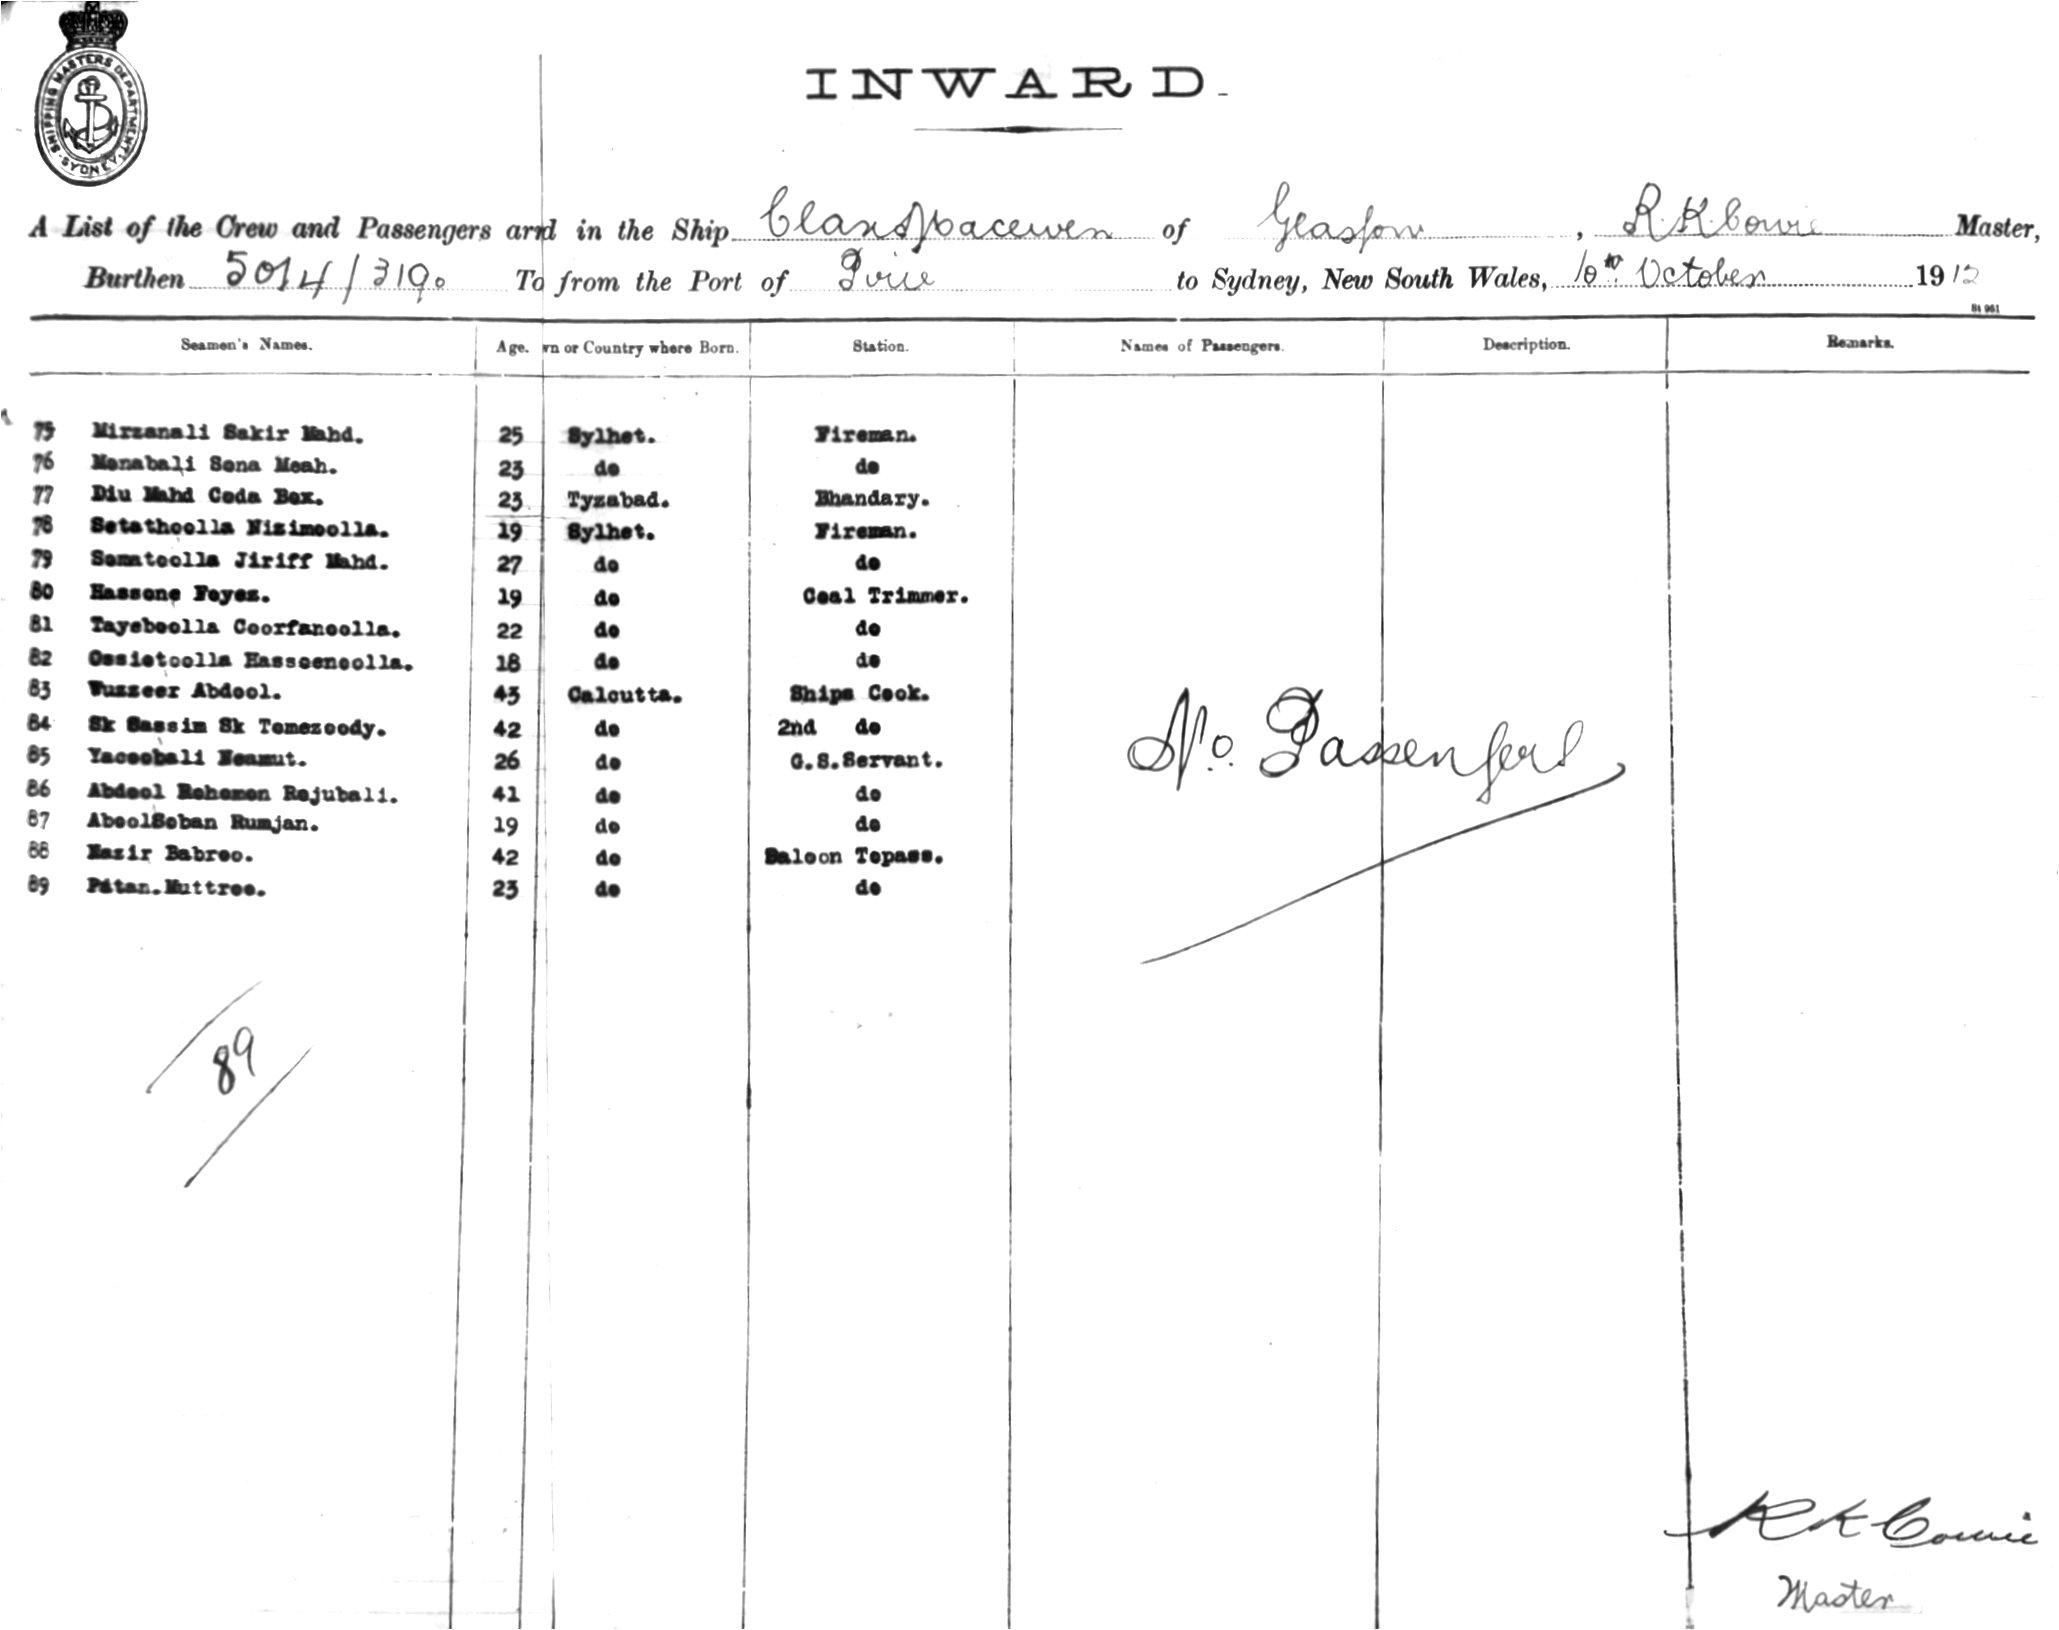 SHIPPING MASTERS DEPARTMENT
SYDNEY
INWARD.
A List of the Crew and Passengers arrd in the Ship Clan Macewen of Glasgow, R. K. Cowie Master,
Burthen 5014/3190 To from the Port of Pirie to Sydney, New South Wales, 10th October 1912
St 961
Seamen's Names. Age. wn or Country where Born. Station. Names of Passengers. Description. Remarks.
75 Mirzanali Sakir Mahd. 25 Sylhet. Fireman.
76 Monabali Sona Meah. 23 do do
77 Diu Mahd Coda Box. 23 Tyzabad. Bhandary.
78 Setathoolla Nizimoolla. 19 Sylhet. Fireman.
79 Somatoolla Jiriff Mahd. 27 do do
80 Hassone Foyez. 19 do Coal Trimmer.
81 Tayeboolla Coorfanoolla. 22 do do
82 Ossietoolla Hassoenoolla. 18 do do
83 Vuzzeer Abdool. 43 Calcutta. Ships Cook.
84 Sk Sassim Sk Tomezoody. 42 do 2nd do
85 Yacoobali Neamut. 26 do G.S.Servant.
86 Abdool Rohomon Rojubali. 41 do do
87 AboolSoban Rumjan. 19 do do
88 Nazir Babroo. 42 do Saloon Topass.
89 Pitan.Muttroo. 23 do do
No. Passengers
89
R K Cowie
Master